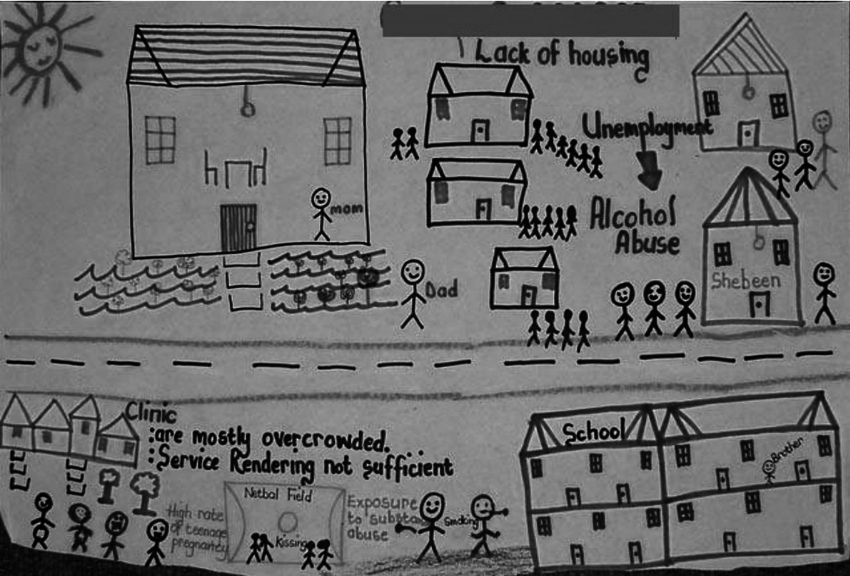 Lack of housing
Unemployment
Alcohol
Abuse
Shebeen
mom
Dad
Clinic
:are mostly overcrowded.
:Service Rendering not sufficient
High rate
of teenage
pregnancy
Netbal Field
Kissing
Exposure
to substance
abuse
Smoking
School
Brother